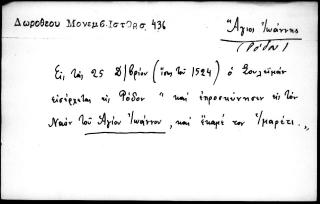 Δωροθεου Μονεμβ. Ιστ. 436
Ἅγιος Ἰωάννης
(Ρόδου)
Εἰς τὰς 25 Δ/βρίου (τοῦ 1524) ὁ Σουλεϊμάν
εἰσέρχεται εἰς Ρόδον " καὶ ἐπροσκύνησεν εἰς τὸν
Ναὸν τοῦ Ἁγίου Ἰωάννου, καὶ ἔκαμέ τον Ἰμαρέτι.,